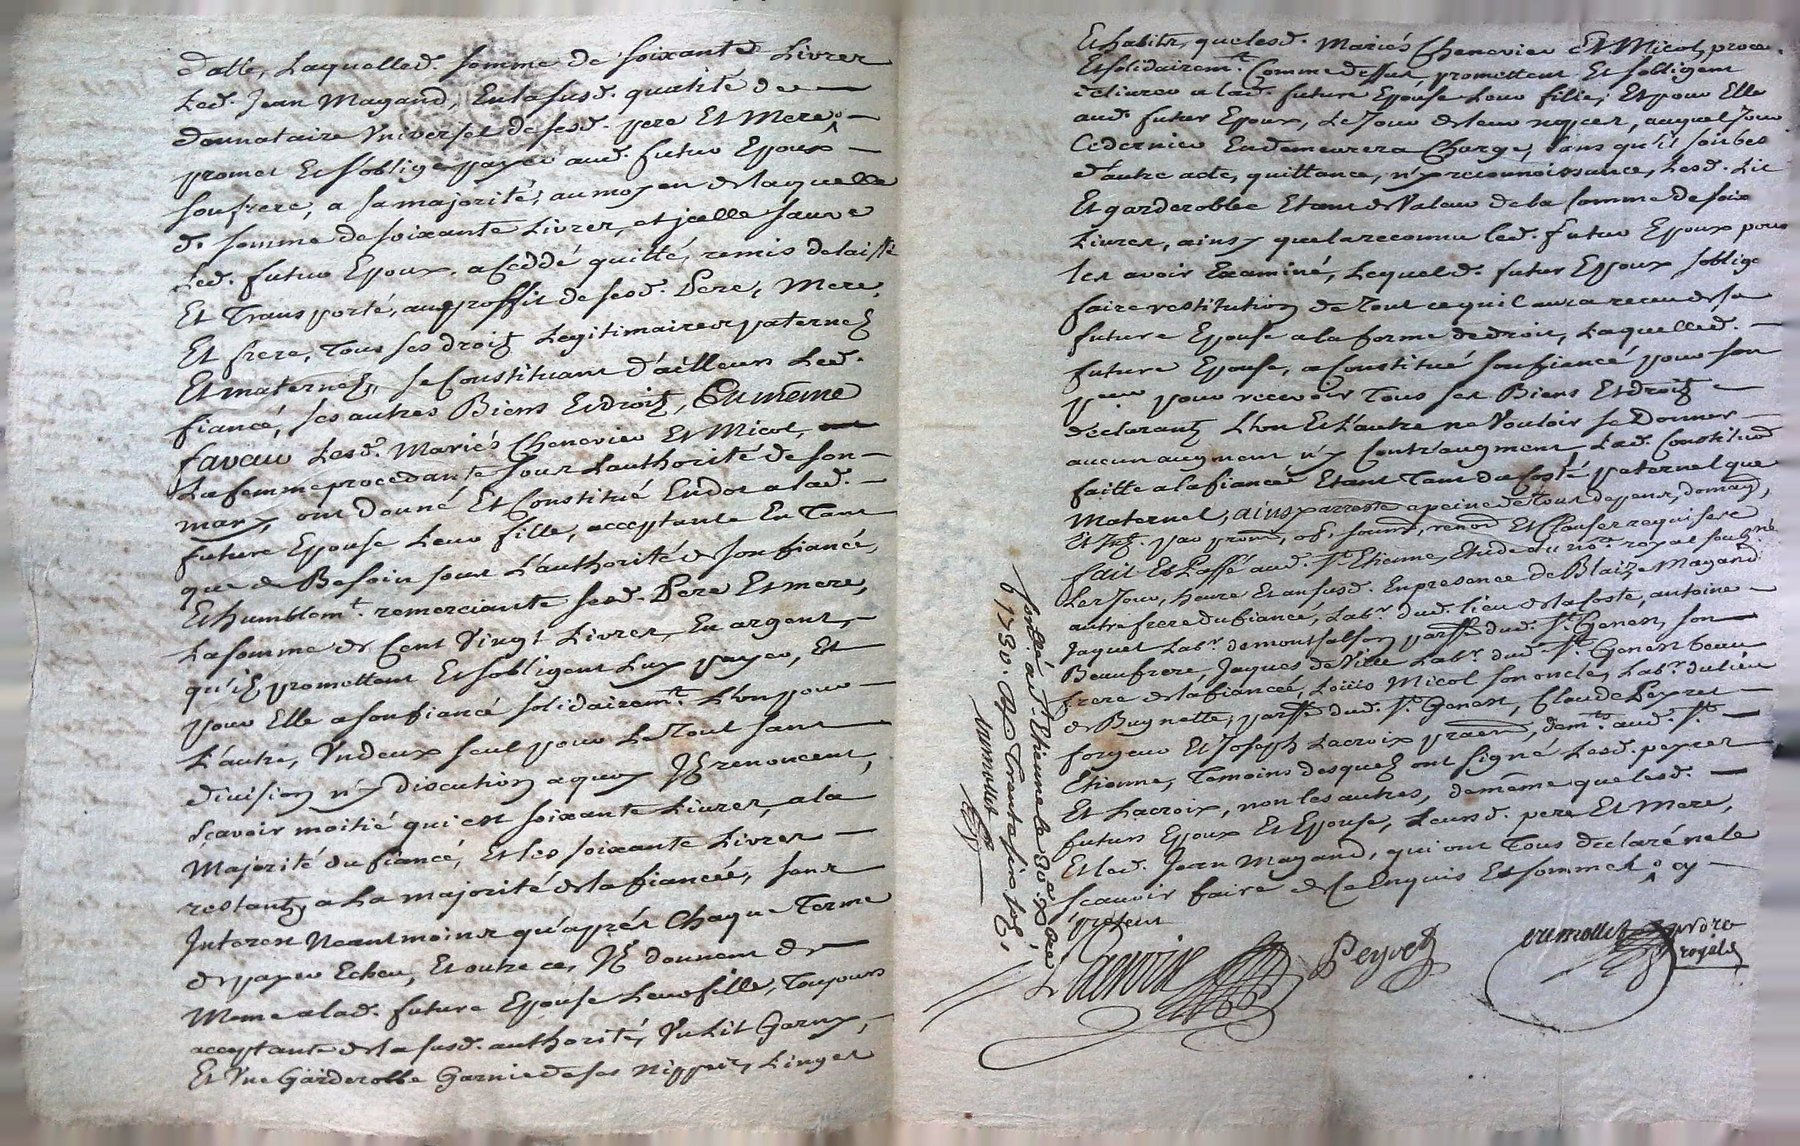 d'alle, Laquelle d. somme de soixante Livres
Led. Jean Magand, En la susd. qualité de
donnataire Vniversel de sesd. pere Et Mere,
promet Et s'oblige payer aud. futur Epoux
son frere, a sa majorité, au moyen de laquelle
d. somme de soixante Livres, et jcelle sauve
Led. futur Epoux, a Ceddé quitté, remis delaissé
Et Transporté, au proffit de sesd. Pere, Mere,
Et frere, Tous ses droitz Legitimaires paternelz
Et maternelz, se Constituant d'ailleurs Led.
fiancé, ses autres Biens Et droitz, En même
faveur Lesd. Mariés Chenevier Et Micol,
La femme procedante sous L'authorité de son
mary, ont donné Et Constitué En dot a lad.
future Epouse Leur fille, acceptante En Tant
que de Besoin sous L'authorité de son fiancé,
Et humblemt. remerciante sesd. Pere Et mere,
La somme de Cent Vingt Livres, En argent,
qu'ilz promettent Et s'obligent Luy payer, Et
pour Elle a son fiancé solidairemt. L'un pour
L'autre, Vn deux seul pour Le Tout sans
division n'y discution a quoy Jlz renoncent,
Sçavoir moitié qui est soixante Livres, a la
Majorité du fiancé, Et les soixante Livres
restantz a La majorité de la fiancée, sans
Interest Neantmoins qu'aprés Chaque Terme
de payer Echeu, Et outre ce, Jlz donnent de
Meme a lad. future Epouse Leur fille, Toujours
acceptante de la susd. authorité, Vn Lit Garny,
Et Vne Garderobbe Garnie de ses nippes, Linges
Et habits, que lesd. Mariés Chenevier Et Micol, proce.
Et solidairemt. Comme dessus, promettent Et s'obligent
délivrer a lad. future Epouse Leur fille, Et pour Elle
aud. futur Epoux, Le Jour de leur nopces, auquel Jour
Ce dernier En demeurera Chargé, sans qu'il soit bes
d'autre acte, quittance, n'y reconnoissance, Lesd. Lit
Et garderobbe Etant de Valeur de la somme de soix
Livres, ainsy que la reconnu led. futur Epoux pour
les avoir Examiné, Lequel d. futur Epoux s'oblige
faire restitution de Tout ce qu'il aura receu de la
future Epouse a la forme de droit, Laquelle d.
future Epouse, a Constitué son fiancé pour son
pour recevoir Tous ses Biens Et droitz
declarantz L'un Et L'autre ne Vouloir se Donner
aucun augment n'y Contr'augment Lad. Constitu͞o
faitte a la fiancée Etant Tant du Costé paternel que
Maternel, ainsy arresté a peine de tous depens, domag,
Et Jnt. par prom, ob, soum, renon Et Clauses requises
fait Et Passé aud. St. Etienne, Etude du nore. royal soubzné
Les Jour, heure Et an susd. En presence de Blaize Magand
autre frere du fiancé, Labr. dud. lieu de la coste, antoine
Jaquet Labr. de montsalson parsse. dud. St. Genest, son
Beaufrere, Jaques de Ville Labr. dud. St. Genest beau
frere de la fiancée, Loüis Micol son oncle, Labr. du lieu
de Bugnette, parsse. dud. St. Genest, Claude Peyret
forgeur Et Joseph Lacroix praen, demts. aud. St.
Etienne, Temoins desquelz ont signé Lesd. peyret
Et Lacroix, non les autres, de même que lesd.
futurs Epoux Et Epouse, Leursd. pere Et Mere,
Et led. Jean Magand, qui ont Tous declaré ne le
sçavoir faire de Ce Enquis Et sommés, oy
Lacroix
Peyret